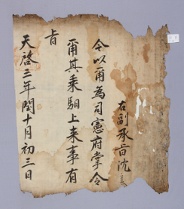 右副承旨沈
今以爾為司憲府掌令
爾其乘馹上來事有
旨
天啓三年閏十月初三日